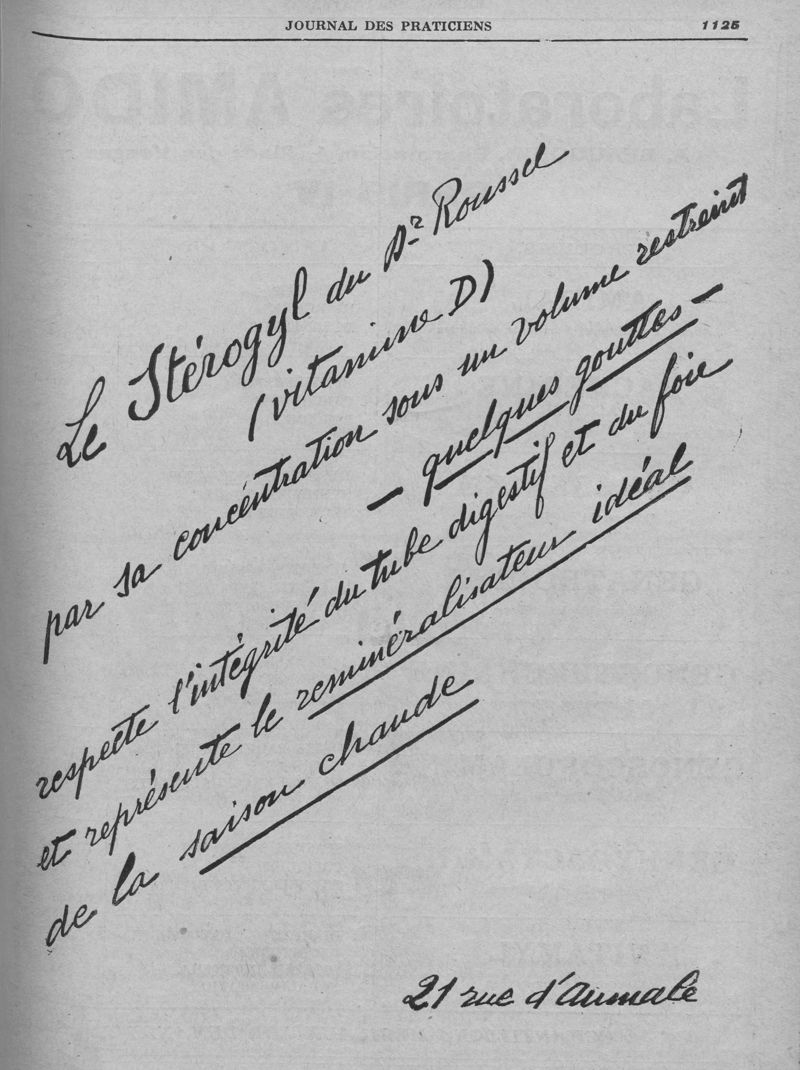 JOURNAL DES PRATICIENS 1125
Le Stérogyl du Dr Roussel
(vitamine D)
par sa concentration sous un volume restreint
— quelques gouttes —
respecte l'intégrité du tube digestif et du foie
et représente le reminéralisateur idéal
de la saison chaude
21 rue d'Aumale